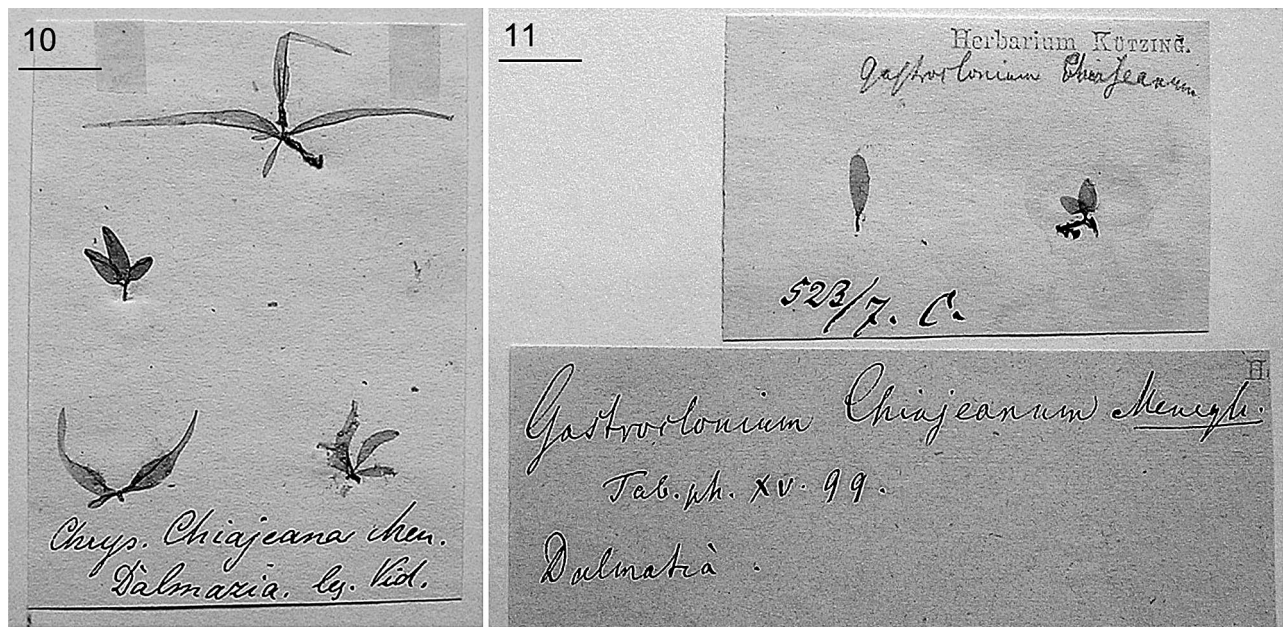 10
Chrys. Chiajeana Men.
Dalmazia. lg. Vid.
11
Herbarium KÜTZING.
Gastroclonium Chiajeanum
523/7. C.
H.
Gastroclonium Chiajeanum Menegh.
Tab. ph. XV. 99.
Dalmatia.